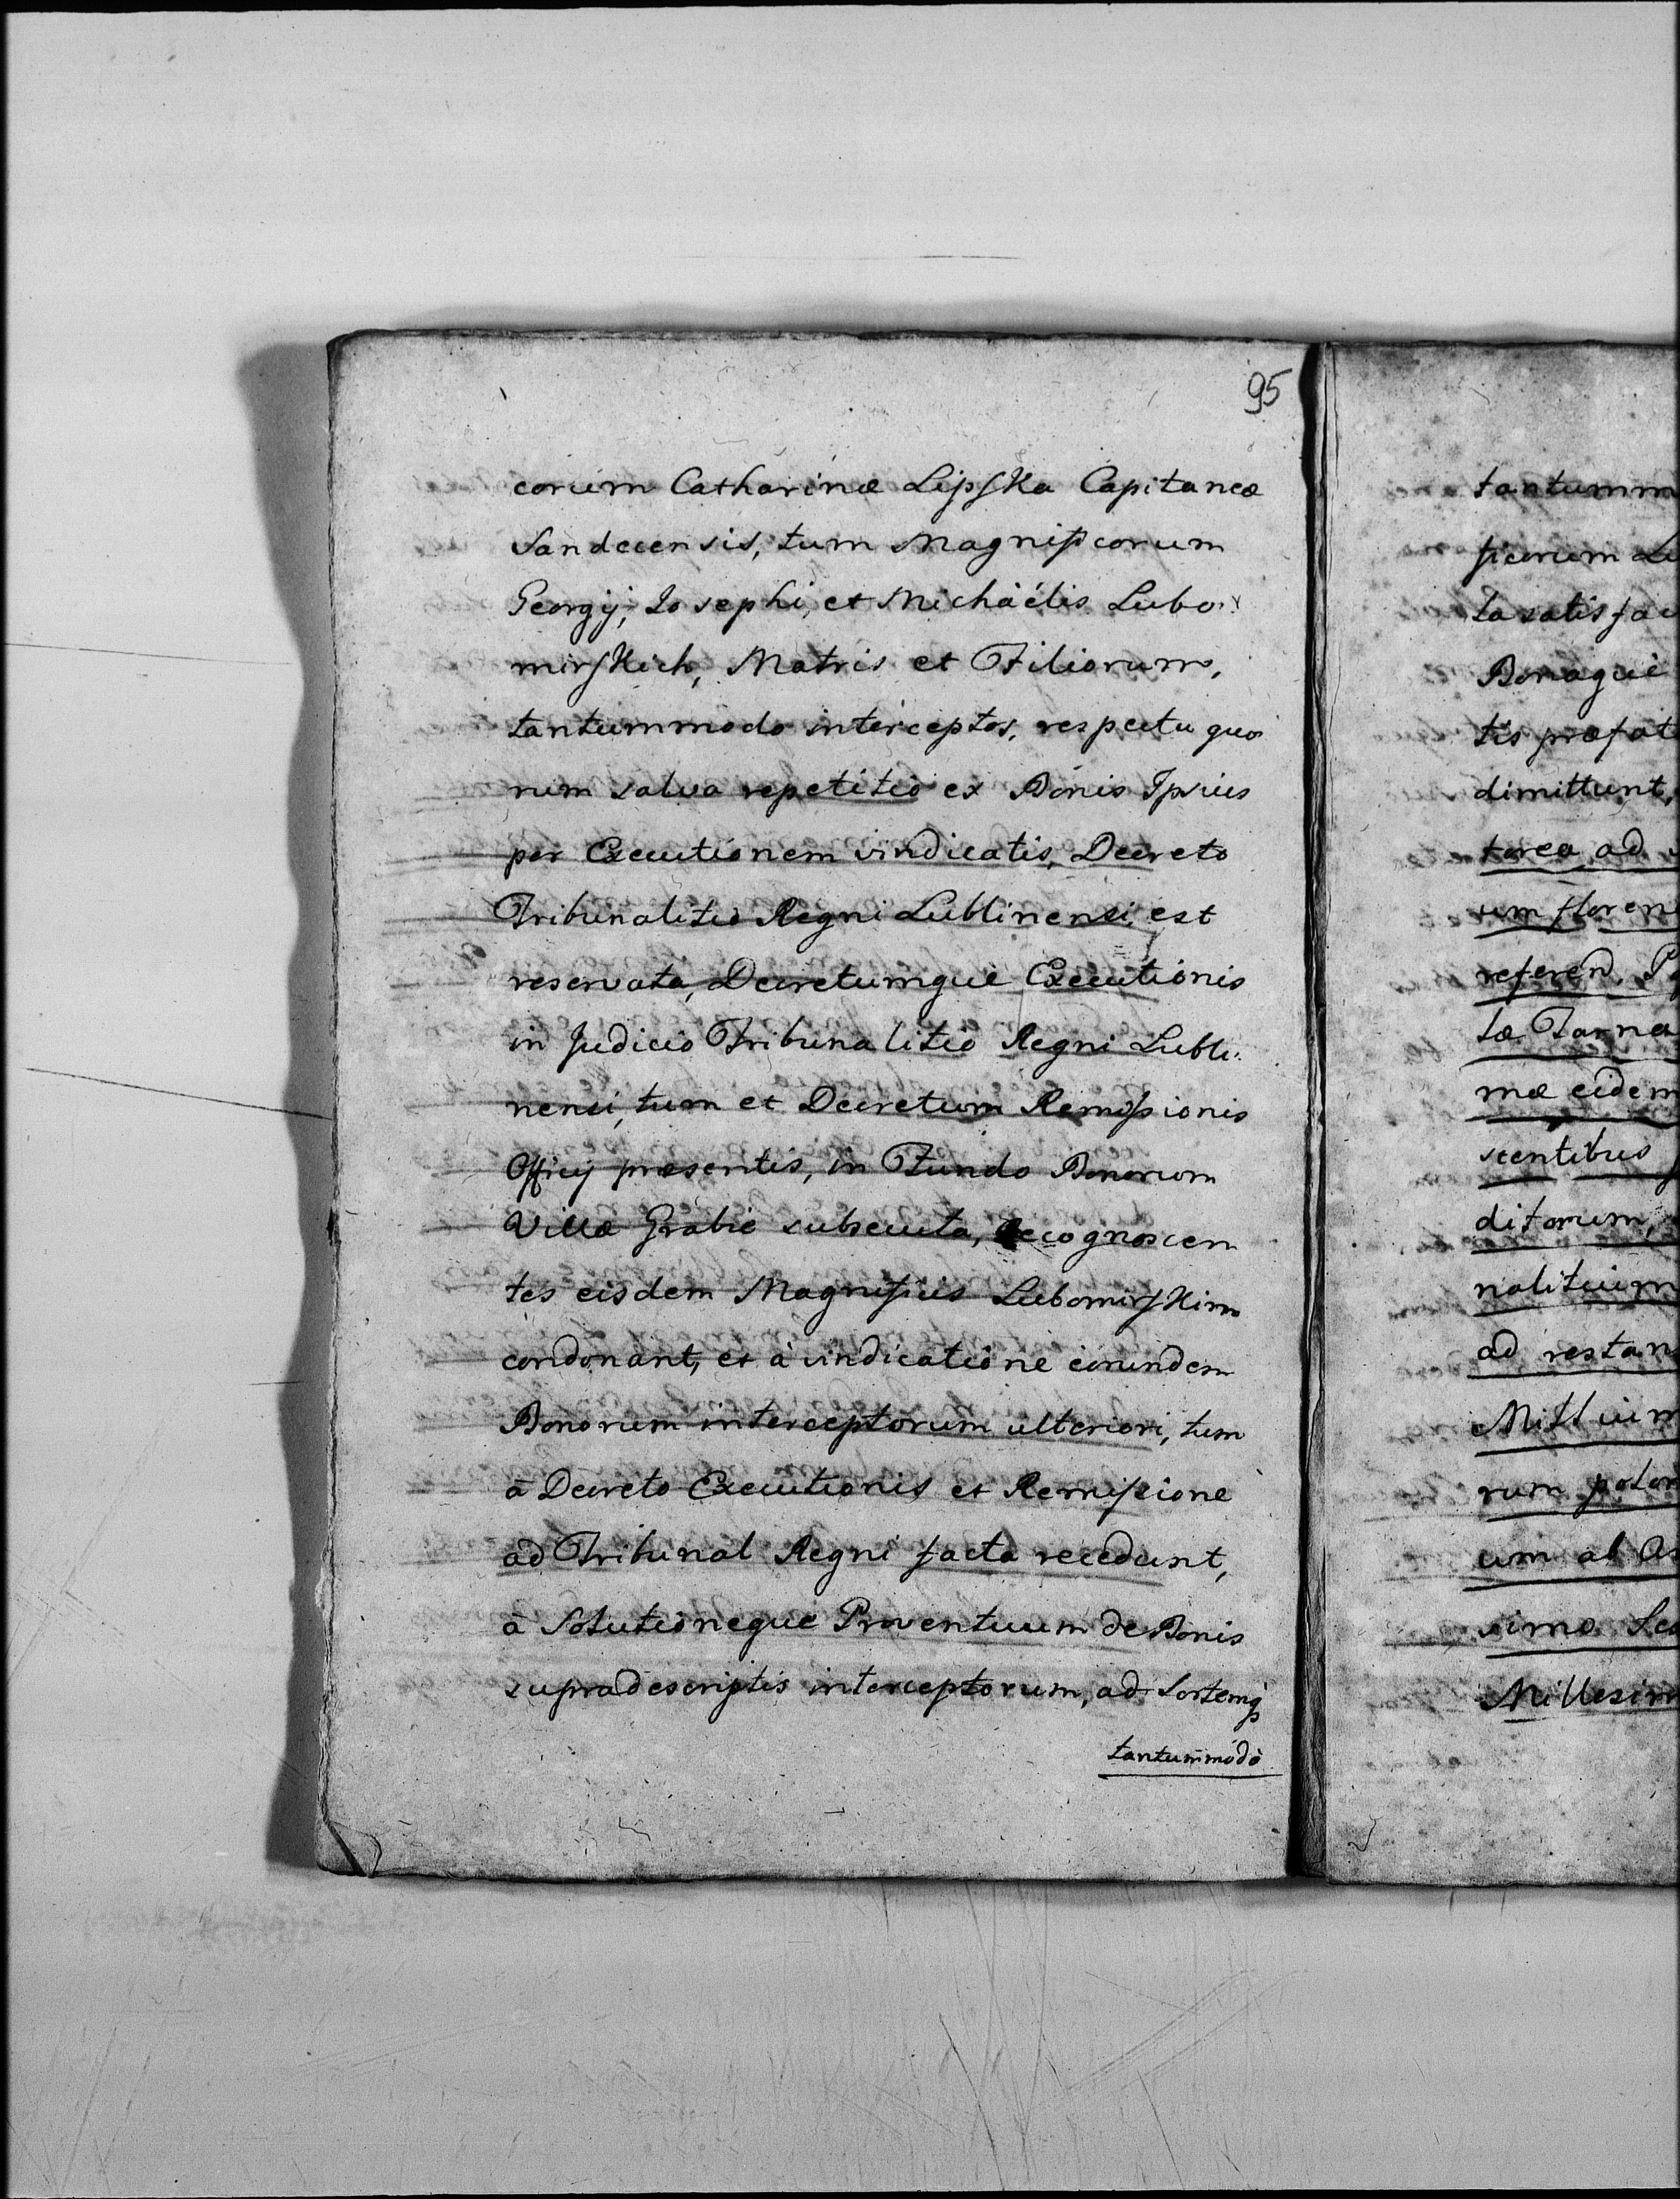 95
corum Catharinæ Lipſka Capitaneæ
Sandecensis, tum Magnificorum
Georgij, Josephi, et Michaëlis Lubo:
mirſkich, Matris et Filiorum,
tantummodo interceptos, respectu quo
rum salva repetitio ex Bonis Ipsius
per Executionem vindicatis, Decreto
Tribunalitio Regni Lublinensi est
reservata, Decretumque Executionis
in Judicio Tribunalitio Regni Lubli:
nensi, tum et Decretum Remiſsionis
Officij præsentis, in Fundo Bonorum
Villæ Grabie subsecuta, recognoscen
tes eisdem Magnificis Lubomirſkim
condonant, et à vindicatione eorundem
Bonorum interceptorum ulteriori, tum
à Decreto Executionis et Remiſsione
ad Tribunal Regni facta recedunt,
à Solutioneque Proventuum de Bonis
supradescriptis interceptorum, ad Sortemq
tantummodò
tantumm
ficorum Lu
ta satisfac
Bonaque
tis præfat
dimittunt,
torea ad
um floren
referend. P
tæ Tarno
mæ eidem
scentibus
ditorum,
nalitium
ad restan
Mittium
rum polon
um al As
simo Sec
Millesim